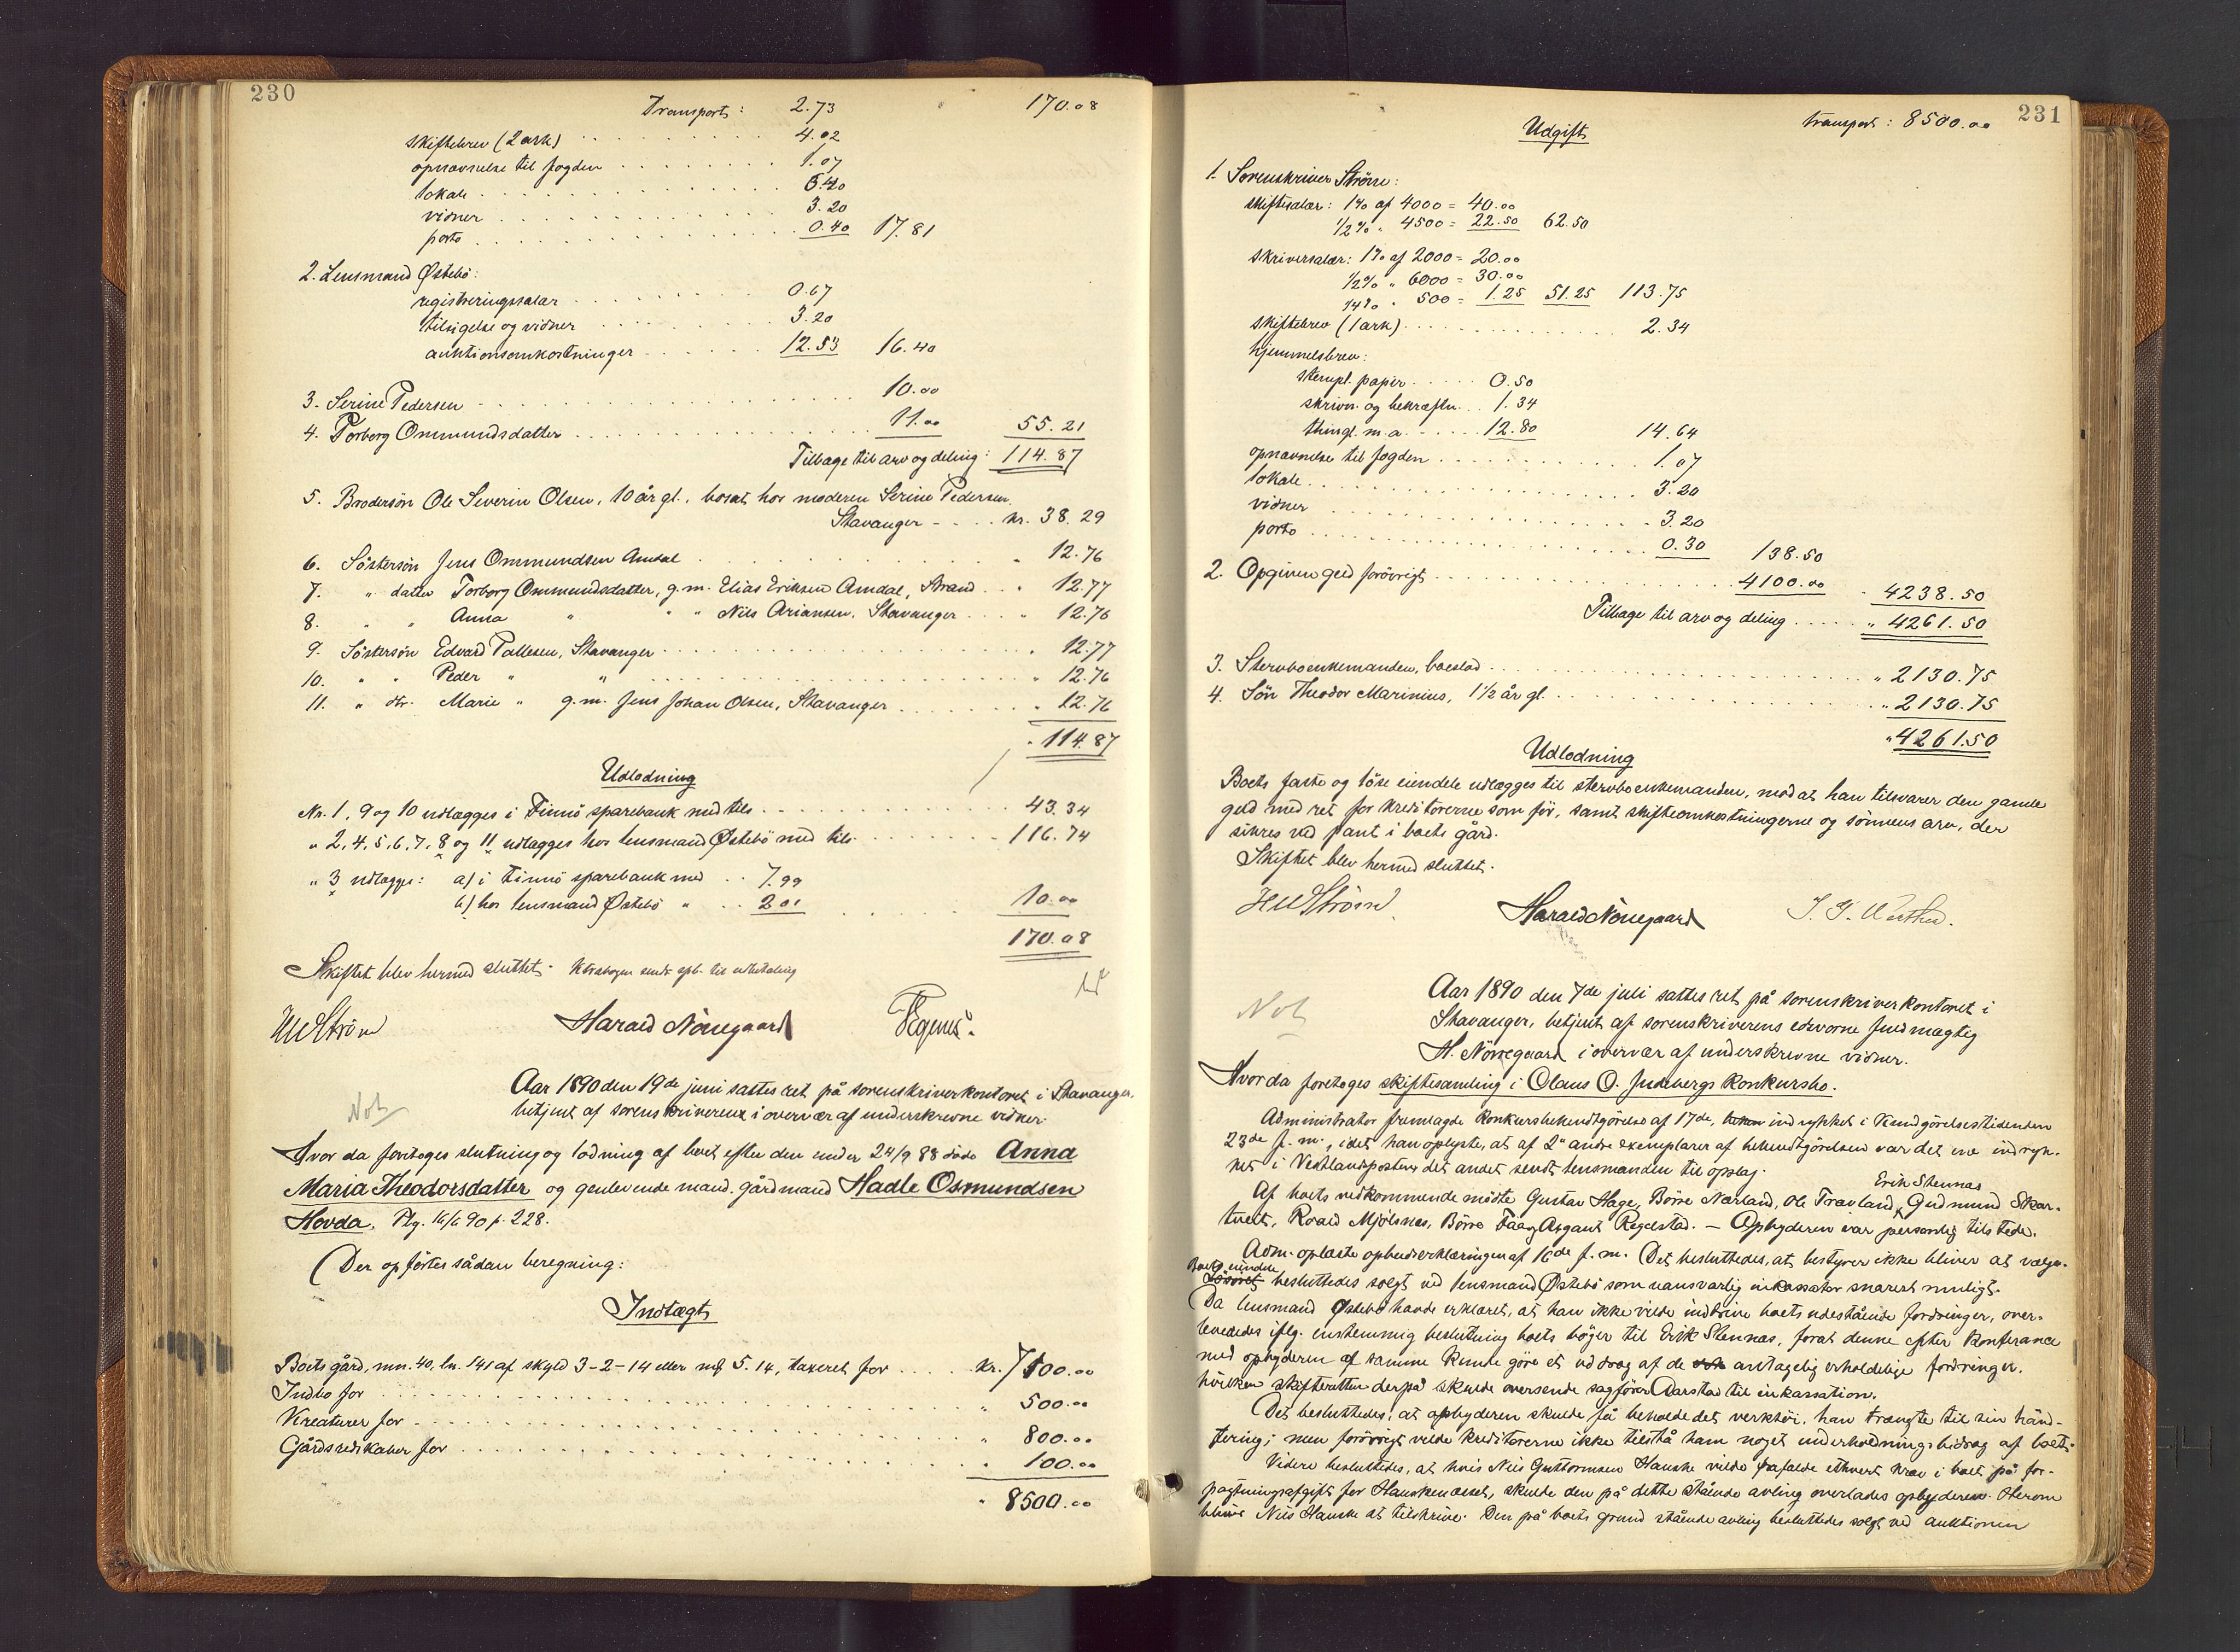 230
Transport: 2.73 170.08
skiftebrev (2 ark) 4.02
opnævnelse til fogden 1.07
lokale 6.40
vidner 3.20
porto 0.40 17.81
2. Lensmand Østebö:
registreringssalær 0.67
tilsigelse og vidner 3.20
auktionsomkostninger 12.53 16.40
3. Serine Pedersen 10.00
4. Torborg Ommundsdatter 11.00 55.21
Tilbage til arv og deling: 114.87
5. Brodersön Ole Severin Olsen, 10 år gl., bosat hos moderen Serine Pedersen
Stavanger kr. 38.29
6. Söstersön Jens Ommundsen Amdal " 12.76
7. " datter Torborg Ommundsdatter, g.m. Elias Eriksen Amdal, Strand " 12.77
8. " " Anna " " " Nils Ariansen, Stavanger " 12.76
9. Söstersön Edvard Pallesen, Stavanger " 12.77
10. " " Peder " " " 12.76
11. " dtr. Marie " g.m. Jens Johan Olsen, Stavanger " 12.76
" 114.87
Udlodning
Nr. 1, 9 og 10 udlægges i Finnö sparebank med tils. 43.34
" 2, 4, 5, 6, 7, 8 og 11 udlægges hos lensmand Østebö med tils. 116.74
" 3 udlægges: a) i Finnö sparebank med 7.99
b) hos lensmand Østebö " 2.01 10.00
170.08
Skiftet blev hermed sluttet.
HWStröm Harald Nörregaard
Not
Aar 1890 den 19de juni sattes ret på sorenskriverkontoret i Stavanger,
betjent af sorenskriveren i overvær af underskrevne vidner.
Hvor da foretoges slutning og lodning af boet efter den under 24/9 88 döde Anna
Maria Theodorsdatter og genlevende mand, gårdmand Hadle Osmundsen
Hovda. Flg. 16/6 90 p. 228.
Der opförtes sådan beregning:
Indtægt
Boets gård, mn. 40, ln. 141 af skyld 3-2-14 eller mk 5.14, taxeret for kr. 7100.00
Indbo for " 500.00
Kreaturer for " 800.00
Gjårdsredskaber for " 100.00
" 8500.00
231
transport: 8500.00
Udgift
1. Sorenskriver Ström:
skiftesalær: 1% af 4000 = 40.00
1/2% " 4500 = 22.50 62.50
skriversalær: 1% af 2000 = 20.00
1/2% " 6000 = 30.00
1/4% " 500 = 1.25 51.25 113.75
skiftebrev (1 ark) 2.34
hjemmelsbrev:
stempl. papir 0.50
skrivn. og bekræftn. 1.34
thingl. m.a. 12.80 14.64
opnævnelse til fogden 1.07
lokale 3.20
vidner 3.20
porto 0.30 138.50
2. Opgiven gæld forövrigt 4100.00 " 4238.50
Tilbage til arv og deling " 4261.50
3. Stervboenkemanden, boeslod " 2130.75
4. Sön Theodor Marinius, 1 1/2 år gl. " 2130.75
" 4261.50
Udlodning
Boets faste og löse eiendele udlægges til stervboenkemanden, mod at han tilsvarer den gamle
gæld med ret for kreditorerne som för, samt skifteomkostningerne og sönnens arv, der
sikres ved pant i boets gård.
Skiftet blev hermed sluttet.
HWStröm Harald Nörregaard
Not
Aar 1890 den 7de juli sattes ret på sorenskriverkontoret i
Stavanger, betjent af sorenskriverens edsvorne fuldmægtig
H. Nörregaard i overvær af underskrevne vidner.
Hvor da foretoges skiftesamling i Olaus O. Judebergs konkursbo.
Administrator fremlagde konkursbekendtgörelse af 17de, indrykket i Kundgörelsestidenden
23de f.m., idet han oplyste, at af 2 andre exemplarer af bekendtgörelsen var det ene indryk-
ket i Vestlandsposten det andet sendt lensmanden til opslag.
Erik Stennas
Af boets vedkommende mödte Gustav Hage, Börre Nærland, Ole Træland, Gudmund Skar-
tveit, Roald Mjölsnes, Börre Faa og Asgaut Regelstad. – Opbyderen var personlig tilstede.
Adm. oplæste opbudserklæringen af 16de f.m. Det besluttedes, at bestyrer ikke bliver at vælge.
Boets eiendele
Lösöret besluttedes solgt ved lensmand Østebö som uansvarlig inkassator snarest muligt.
Da lensmand Østebö havde erklæret, at han ikke vilde inddrive boets udestående fordringer, over-
leveredes iflg. enstemmig beslutning boets böger til Erik Stennas, forat denne efter konferance
med opbyderen af samme kunde göre et uddrag af de antagelig erholdelige fordringer,
hvilken skifteretten derpå skulde oversende sagförer Aarstad til inkassation.
Det besluttedes, at opbyderen skulde få beholde det verktöi, han trængte til sin hånd-
tering; men forövrigt vilde kreditorerne ikke tilstå ham noget underholdningsbidrag af boet.
Videre besluttedes, at hvis Nils Guttormsen Hauske vilde frafalde ethvert krav i boet på for-
pagtningsafgift for Hauskenæset, skulde den på dette stående avling overlades opbyderen. Herom
bliver Nils Hauske at tilskrive. Den på boets grund stående avling besluttedes solgt ved auktionen